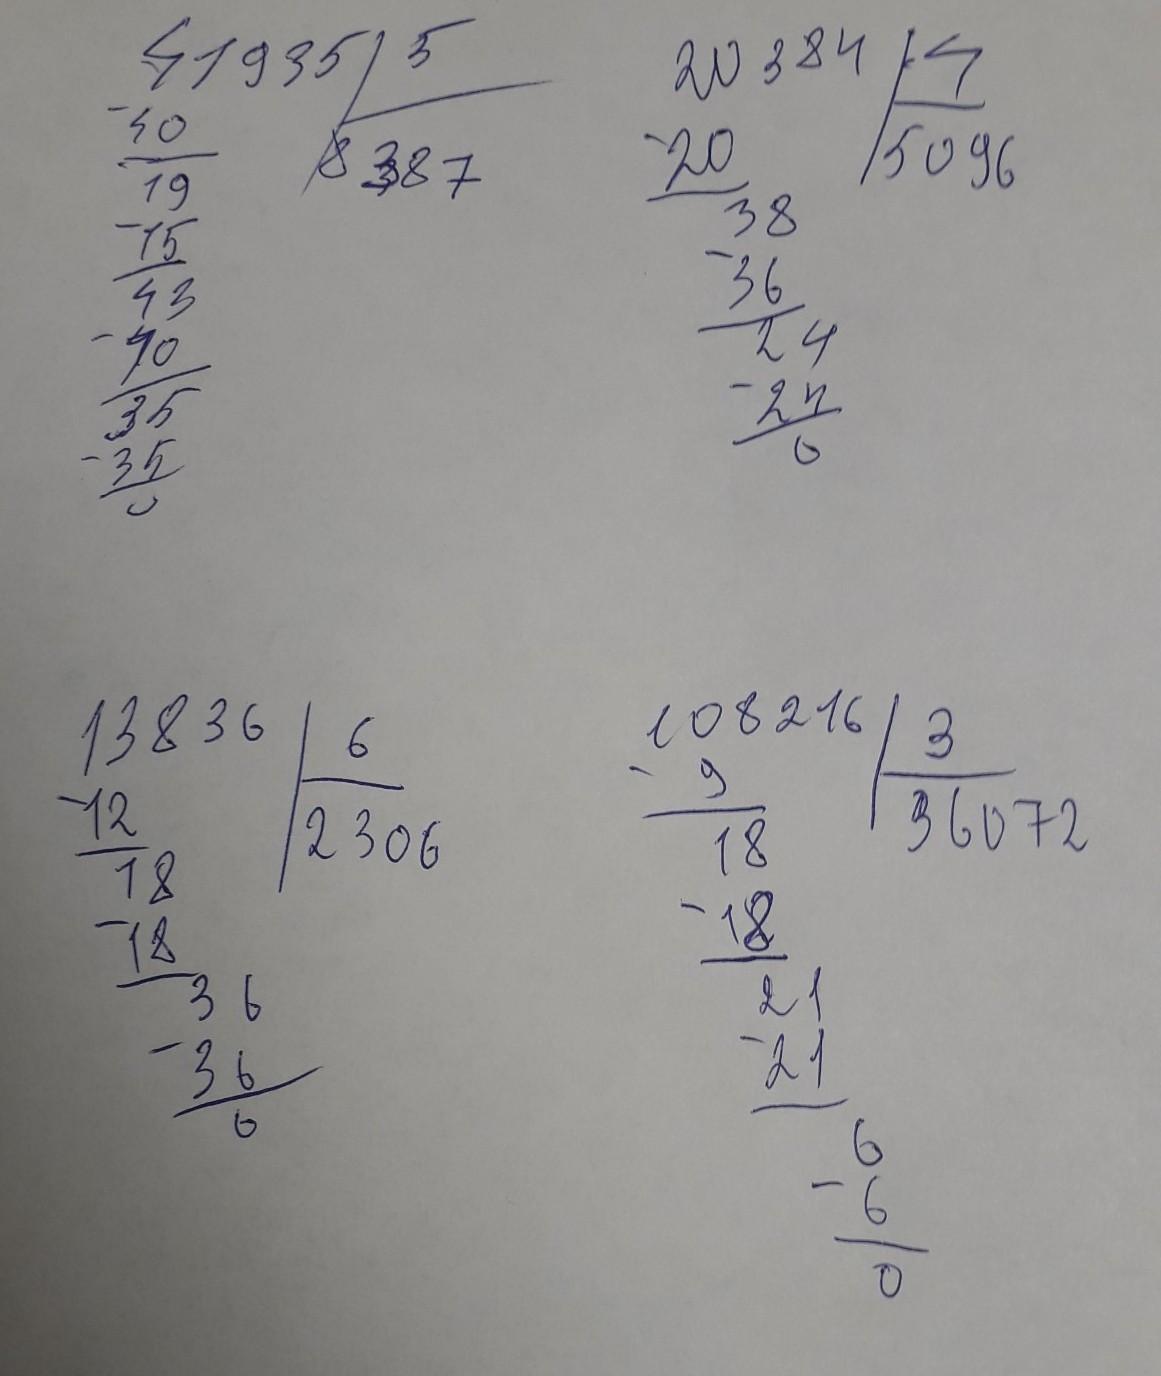 41935 5
-40 8387
19
-15
43
-40
35
-35
0
20384 4
-20 5096
38
-36
24
-24
0
13836 6
-12 2306
18
-18
36
-36
0
108216 3
-9 36072
18
-18
21
-21
6
-6
0